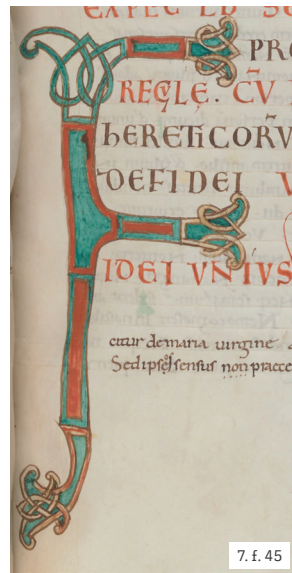 EXPEC LB
F PRO
REGLE. CV̄
hERETICORV̄
DEFIDEI V
IDEI VNIVS
citur demaria uirgine
Sed ipse sensus non praece
7. f. 45